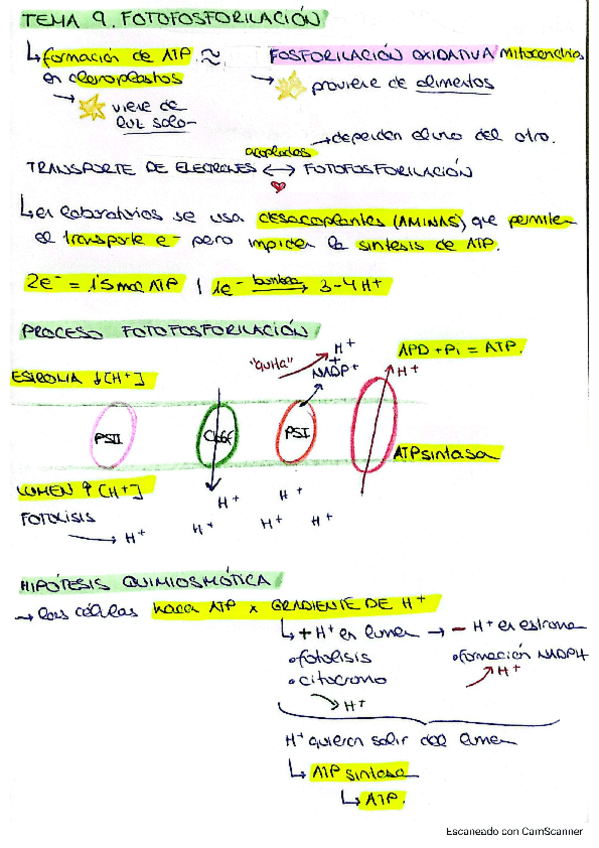 TEMA 9. FOTOFOSFORILACIÓN
↳ formación de ATP ≈ FOSFORILACIÓN OXIDATIVA Mitocondria
en cloroplastos
→ viene de luz solar
→ proviene de alimentos
acoplados → dependen el uno del otro.
TRANSPORTE DE ELECTRONES ↔ FOTOFOSFORILACIÓN
↳ en laboratorios se usa desacoplantes (AMINAS) que permiten
el transporte e- pero impiden la síntesis de ATP.
2e- = 1'5 mol ATP | 1e- bombea → 3-4 H+
PROCESO FOTOFOSFORILACIÓN
"quita" H+ + NADP+
APD + Pi = ATP.
H+
ESTROMA ↓[H+]
PSII
Cb6f
PSI
ATP sintasa
LUMEN ↑[H+]
H+ H+
FOTOLISIS → H+
H+ H+ H+
HIPÓTESIS QUIMIOSMÓTICA
→ las células hacen ATP x GRADIENTE DE H+
↳ + H+ en lumen → - H+ en estroma
• fotolisis • formación NADPH
• citocromo H+
→ H+
H+ quieren salir del lumen
↳ ATP sintasa
↳ ATP.
Escaneado con CamScanner